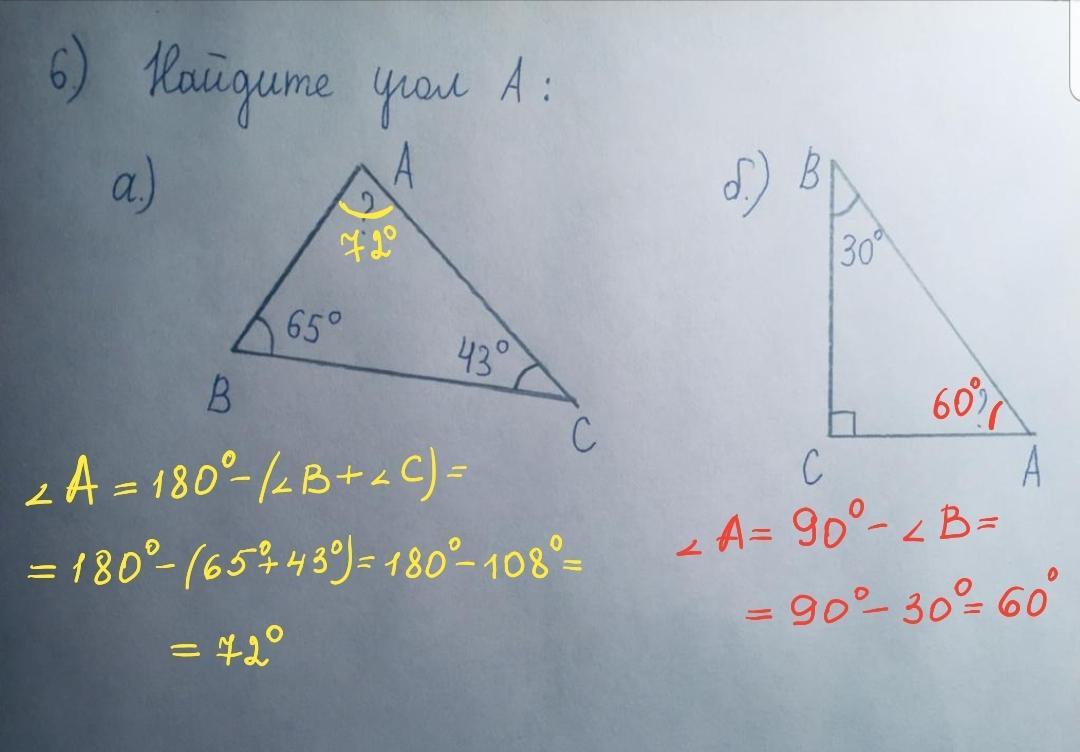 6.) Найдите угол А:
а.)
A
?
72°
65°
43°
B
C
∠A = 180° - (∠B + ∠C) =
= 180° - (65° + 43°) = 180° - 108° =
= 72°
б.)
B
30°
60°
?
C
A
∠A = 90° - ∠B =
= 90° - 30° = 60°